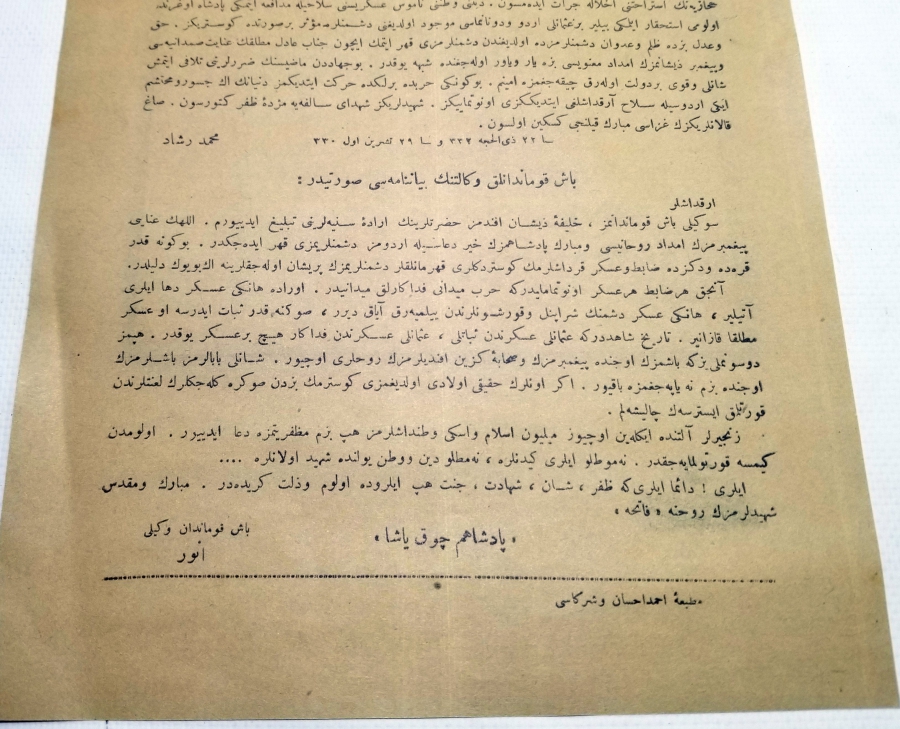 حجازیه‌نك استراحتنی اخلاله جرأت ایده‌مسون . دینی وطنی ناموس عسکریسنی سلاحیله مدافعه ایتمکی پادشاه اوغرنده
اولومی استحقار ایتمکی بیلیر برعثمانلی اردو ودونانماسی موجود اولدیغنی دشمنلره مؤثر برصورتده کوستریکز . حق
وعدل بزده ظلم وعدوان دشمنلرمزده اولدیغندن دشمنلرمزی قهر ایتمك ایچون جناب عادل مطلقك عنایت صمدانیه‌سی
وپیغمبر ذیشانمزك امداد معنویسی بزه یار ویاور اوله‌جغنده شبهه یوقدر . بوجهاددن ماضیسنك ضررلرینی تلافی ایتمش
شانلی وقوی بردولت اوله‌رق چیقه‌جغمزه امینم . بوکونکی حربده برلکده حرکت ایتدیکمز دنیانك اك جسور ومحتشم
ایکی اردوسیله سلاح آرقداشلغی ایتدیککزی اونوتماییکز . شهیدلریکز شهدای سالفه‌یه مژدهٔ ظفر کتورسون . صاغ
قالانلریکزك غزاسی مبارك قیلنجی کسکین اولسون .
سا ٢٢ ذی‌الحجه ٣٣٢ و سا ٢٩ تشرین اول ٣٣٠ محمد رشاد
باش قوماندانلق وکالتنك بیاننامه‌سی صورتیدر :
ارقداشلر
سوکیلی باش قوماندانمز ، خلیفهٔ ذیشان افندمز حضرتلرینك ارادهٔ سنیه‌لرینی تبلیغ ایدییورم . اللهك عنایتی
پیغمبرمزك امداد روحانیسی ومبارك پادشاهمزك خیر دعاسیله اردومز دشمنلریمزی قهر ایده‌جکدر . بوکونه قدر
قره‌ده ودکزده ضابط وعسکر قرداشلرمك کوستردکلری قهرمانلقلر دشمنلریمزك پریشان اوله‌جقلرینه اك‌بویوك دلیلدر.
آنجق هرضابط هرعسکر اونوتمامالیدرکه حرب میدانی فداکارلق میدانیدر . اوراده هانکی عسکر دها ایلری
آتیلیر ، هانکی عسکر دشمنك شراپنل وقورشونلرندن ییلمیه‌رق آیاق دیرر ، صوکنه‌قدر ثبات ایدرسه او عسکر
مطلقا قازانیر . تاریخ شاهددرکه عثمانلی عسکرندن ثباتلی ، عثمانلی عسکرندن فداکار هیچ برعسکر یوقدر . هپمز
دوشونملی‌یزکه باشمزك اوجنده پیغمبرمزك وصحابهٔ کزین افندیلرمزك روحلری اوچیور . شانلی بابالرمز باشلرمزك
اوجنده بزم نه یاپه‌جغمزه باقیور . اکر اونلرك حقیقی اولادی اولدیغمزی کوسترمك بزدن صوکره کله‌جکلرك لعنتلرندن
قورتلمق ایسترسه‌ك چالیشه‌لم .
زنجیرلر آلتنده ایکله‌ین اوچیوز میلیون اسلام واسکی وطنداشلرمز هپ بزم مظفریتمزه دعا ایدییور . اولومدن
کیمسه قورتولمایه‌جقدر . نه‌موطلو ایلری کیدنلره ، نه‌مطلو دین ووطن یولنده شهید اولانلره ....
ایلری ! دائما ایلری‌که ظفر ، شان ، شهادت ، جنت هپ ایلروده اولوم وذلت کریده‌در . مبارك ومقدس
شهیدلرمزك روحنه « فاتحه »
« پادشاهم چوق یاشا »
باش قوماندان وکیلی
انور
مطبعهٔ احمداحسان وشرکاسی